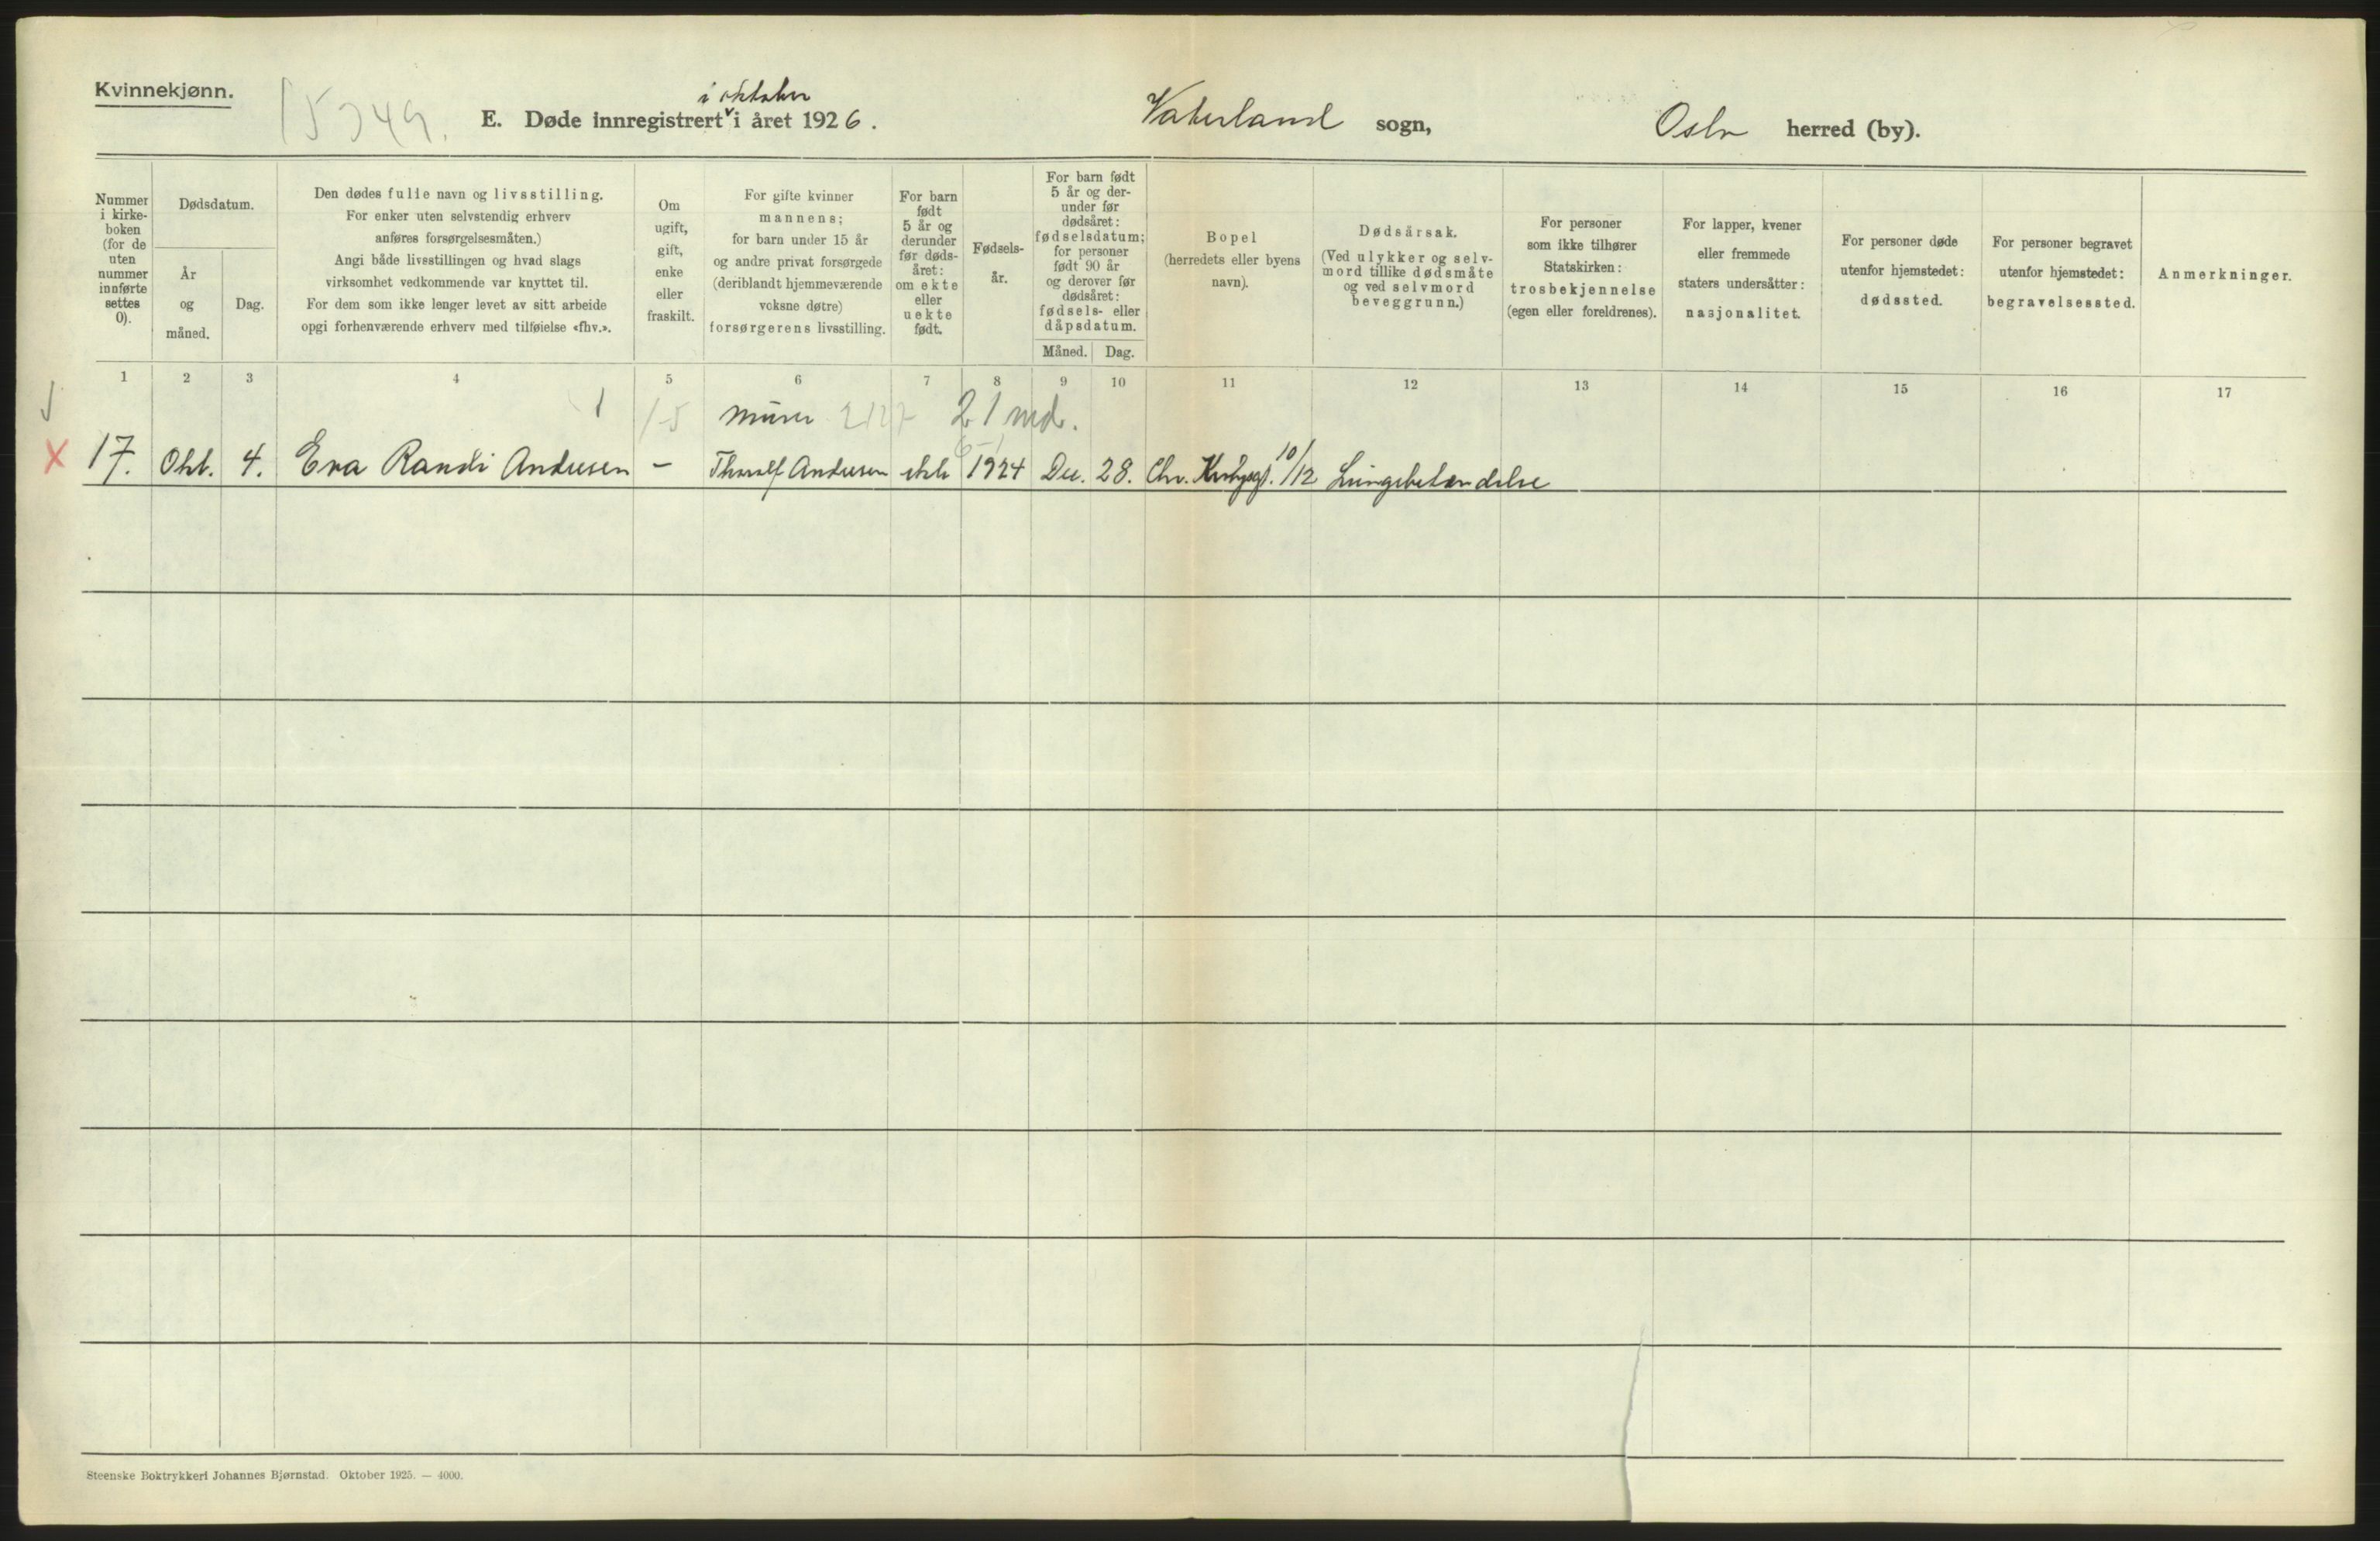 Kvinnekjønn.
15349.
i oktober
E. Døde innregistrert i året 1926.
Vaterland sogn,
Oslo herred (by).
Nummer
i kirke-
boken
(for de
uten
nummer
innførte
settes
0).
Dødsdatum.
År
og
måned.
Dag.
Den dødes fulle navn og livsstilling.
For enker uten selvstendig erhverv
anføres forsørgelsesmåten.)
Angi både livsstillingen og hvad slags
virksomhet vedkommende var knyttet til.
For dem som ikke lenger levet av sitt arbeide
opgi forhenværende erhverv med tilføielse «fhv.».
Om
ugift,
gift,
enke
eller
fraskilt.
For gifte kvinner
mannens;
for barn under 15 år
og andre privat forsørgede
(deriblandt hjemmeværende
voksne døtre)
forsørgerens livsstilling.
For barn
født
5 år og
derunder
før døds-
året:
om ekte
eller
uekte
født.
Fødsels-
år.
For barn født
5 år og der-
under før
dødsåret:
fødselsdatum;
for personer
født 90 år
og derover før
dødsåret:
fødsels- eller
dåpsdatum.
Måned. Dag.
Bopel
(herredets eller byens
navn).
Dødsårsak.
(Ved ulykker og selv-
mord tillike dødsmåte
og ved selvmord
beveggrunn.)
For personer
som ikke tilhører
Statskirken:
trosbekjennelse
(egen eller foreldrenes).
For lapper, kvener
eller fremmede
staters undersåtter:
nasjonalitet.
For personer døde
utenfor hjemstedet:
dødssted.
For personer begravet
utenfor hjemstedet:
begravelsessted.
Anmerkninger.
1 2 3 4 5 6 7 8 9 10 11 12 13 14 15 16 17
1 15 murer 21 md.
X 17. Okt. 4. Eva Randi Andresen - Thoralf Andresen ekte 1924 Dec. 28. Chr. Krohgsgt. 10/12 Lungebetændelse
Steenske Boktrykkeri Johannes Bjørnstad. Oktober 1925. — 4000.